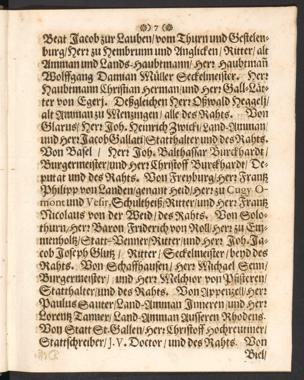 ❁) 7 (❁
Beat Jacob zur Lauben/ vom Thurn und Gestelen-
burg/ Herr zu Hembrunn und Anglicken/ Ritter/ alt
Amman und Lands-Haubtmann/ Herr Haubtman
Wolffgang Damian Müller Seckelmeister. Herr
Haubtmann Christian Herman/ und Herr Gall-Lät-
ter von Egerj. Deßgleichen Herr Oßwald Heggeli/
alt Amman zu Mentzingen/ alle des Rahts. Von
Glarus/ Herr Joh. Heinrich Zwicki/ Land-Amman/
und Herr Jacob Gallati/ Statthalter und des Rahts.
Von Basel/ Herr Joh. Balthassar Burckhardt/
Burgermeister/ und Herr Christoff Burckhardt/ De-
putat und des Rahts. Von Freyburg/ Herr Frantz
Philipp von Landen/ genant Heid/ Herr zu Cugy O-
mont und Vesir, Schultheiß/ Ritter/ und Herr Frantz
Nicolaus von der Weid/ des Rahts. Von Solo-
thurn/ Herr Baron Friderich von Roll/ Herr zu Em-
menholtz/ Statt-Venner/ Ritter/ und Herr Joh. Ja-
cob Joseph Glutz/ Ritter/ Seckelmeister/ beyd des
Rahts. Von Schaffhausen/ Herr Michael Senn/
Burgermeister/ und Herr Melchior von Pfistern/
Statthalter und des Rahts. Von Appenzell/ Herr
Paulus Sauter/ Land-Amman Inneren/ und Herr
Lorentz Tanner/ Land-Amman Ausseren Rhodens.
Von Statt St. Gallen/ Herr Christoff Hochreutiner/
Stattschreiber/ J. V. Doctor/ und des Rahts. Von
Biel/